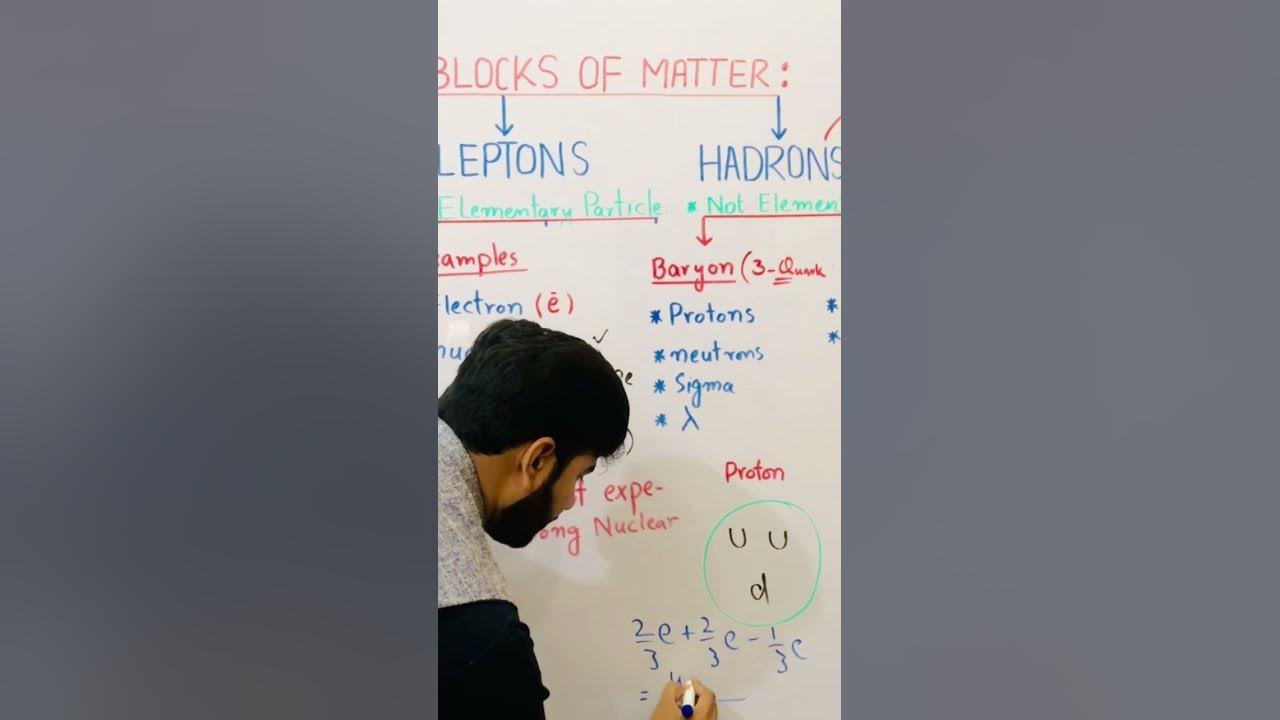 BLOCKS OF MATTER:
LEPTONS
HADRONS
Elementary Particle
* Not Elemen
amples
lectron (ē)
Baryon (3-Quark
* Protons
* neutrons
* Sigma
* λ
expe-
ong Nuclear
Proton
U U
d
2/3 e + 2/3 e - 1/3 e
=